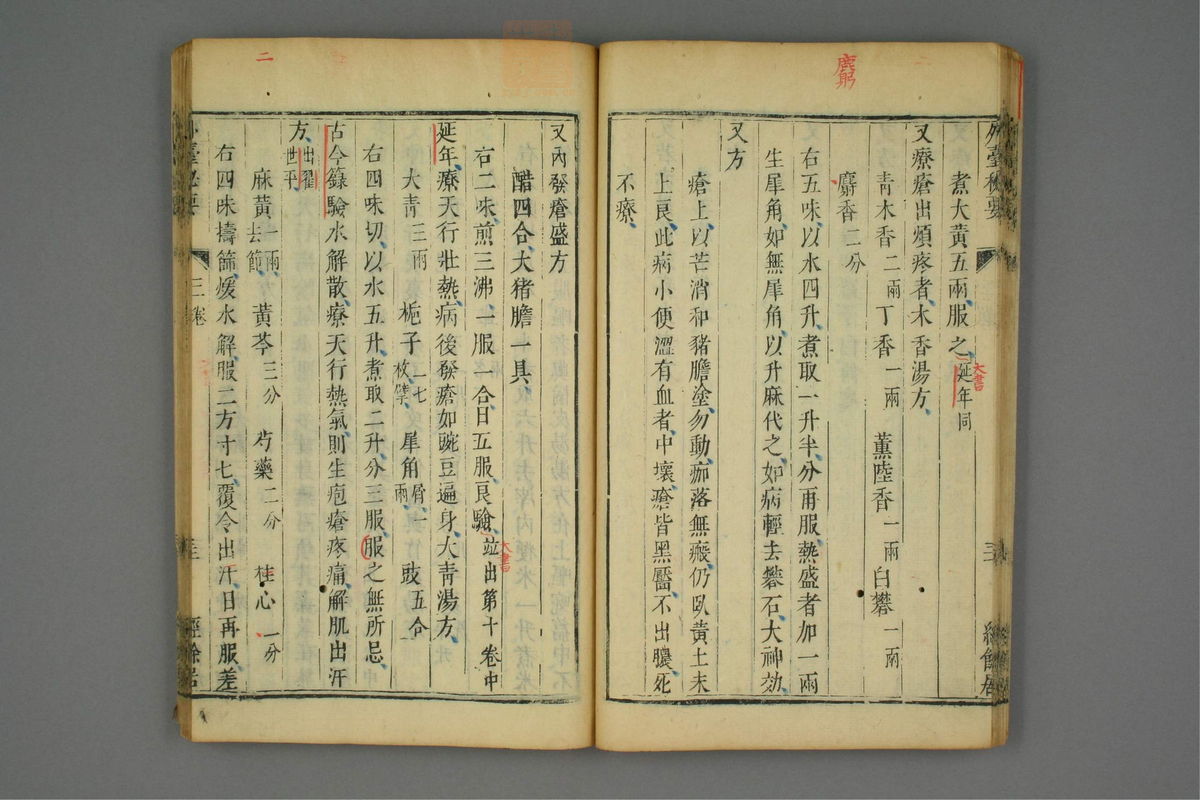 煮大黃五兩服之延年同
大書
又療瘡出煩疼者木香湯方
青木香二兩 丁香一兩 薰陸香一兩 白礬一兩
麝香二分
右五味以水四升煮取一升半分再服熱盛者加一兩
生犀角如無犀角以升麻代之如病輕去礬石大神効
又方
瘡上以芒消和豬膽塗勿動痂落無瘢仍臥黃土末
上良此病小便澀有血者中壞瘡皆黑靨不出膿死
不療
又內發瘡盛方
醋四合大猪膽一具
右二味煎三沸一服一合日五服良驗並出第十卷中
大書
延年療天行壯熱病後發瘡如豌豆遍身大青湯方
大青三兩 梔子一七枚擘 犀角屑一兩 豉五合
右四味切以水五升煮取二升分三服服之無所忌
古今錄驗水解散療天行熱氣則生疱瘡疼痛解肌出汗
方出翟世平
麻黃一兩去節 黃芩三分 芍藥二分 桂心一分
右四味擣篩煖水解服二方寸匕覆令出汗日再服差
外臺秘要 三卷
二